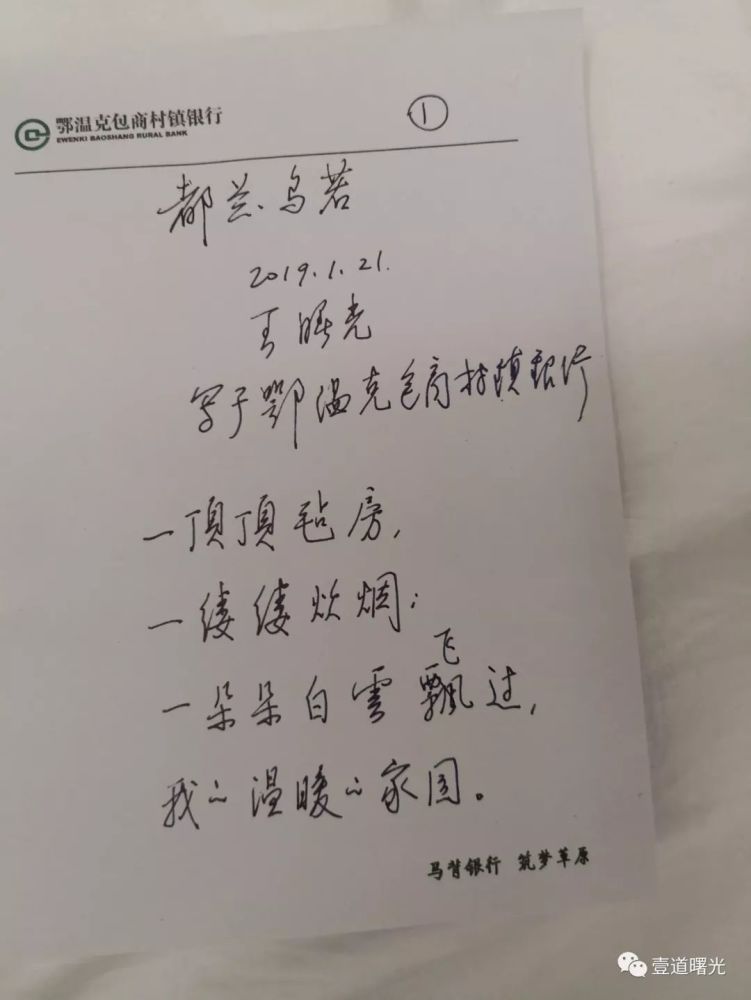 鄂温克包商村镇银行
EWENKI BAOSHANG RURAL BANK
①
都兰乌若
2019.1.21.
王曙光
写于鄂温克包商村镇银行
一頂頂毡房，
一缕缕炊烟；
飞
一朵朵白雲飄过，
我的温暖的家园。
马背银行 筑梦草原
壹道曙光